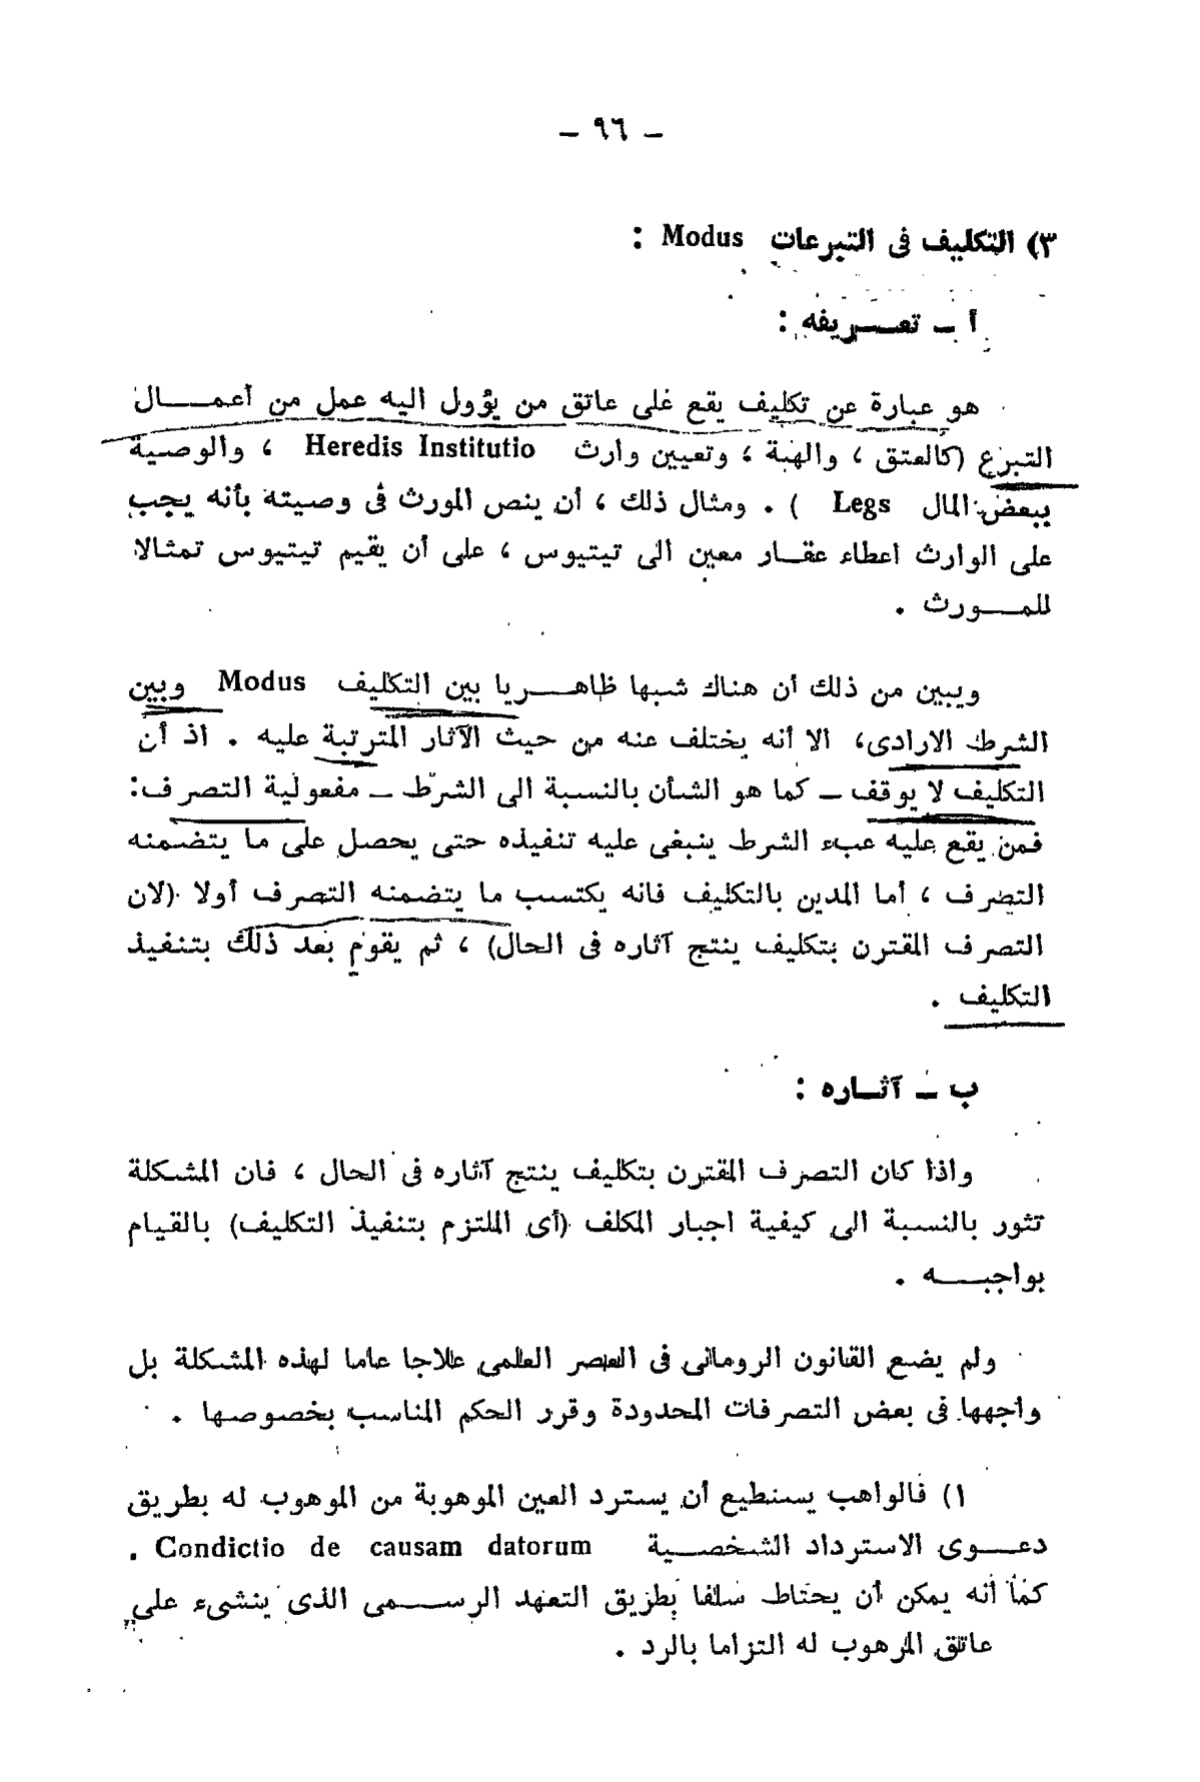 — ٩٦ —
٣) التكليف فى التبرعات Modus :
أ — تعـــريفه :
هو عبارة عن تكليف يقع على عاتق من يؤول اليه عمل من أعمـــال
التبرع (كالعتق ، والهبة ، وتعيين وارث Heredis Institutio ، والوصية
ببعض المال Legs ) . ومثال ذلك ، أن ينص المورث فى وصيته بأنه يجب
على الوارث اعطاء عقــار معين الى تيتيوس ، على أن يقيم تيتيوس تمثالا
للمـــورث .
ويبين من ذلك أن هناك شبها ظاهـــريا بين التكليف Modus وبين
الشرط الارادى، الا أنه يختلف عنه من حيث الآثار المترتبة عليه . اذ أن
التكليف لا يوقف — كما هو الشأن بالنسبة الى الشرط — مفعولية التصرف:
فمن يقع عليه عبء الشرط ينبغى عليه تنفيذه حتى يحصل على ما يتضمنه
التصرف ، أما المدين بالتكليف فانه يكتسب ما يتضمنه التصرف أولا (لان
التصرف المقترن بتكليف ينتج آثاره فى الحال) ، ثم يقوم بعد ذلك بتنفيذ
التكليف .
ب — آثــاره :
واذا كان التصرف المقترن بتكليف ينتج آثاره فى الحال ، فان المشكلة
تثور بالنسبة الى كيفية اجبار المكلف (أى الملتزم بتنفيذ التكليف) بالقيام
بواجبـــه .
ولم يضع القانون الرومانى فى العصر العلمى علاجا عاما لهذه المشكلة بل
واجهها فى بعض التصرفات المحدودة وقرر الحكم المناسب بخصوصها .
١) فالواهب يستطيع أن يسترد العين الموهوبة من الموهوب له بطريق
دعـــوى الاسترداد الشخصـــية Condictio de causam datorum .
كما أنه يمكن أن يحتاط سلفا بطريق التعهد الرســـمى الذى ينشىء على
عاتق الموهوب له التزاما بالرد .